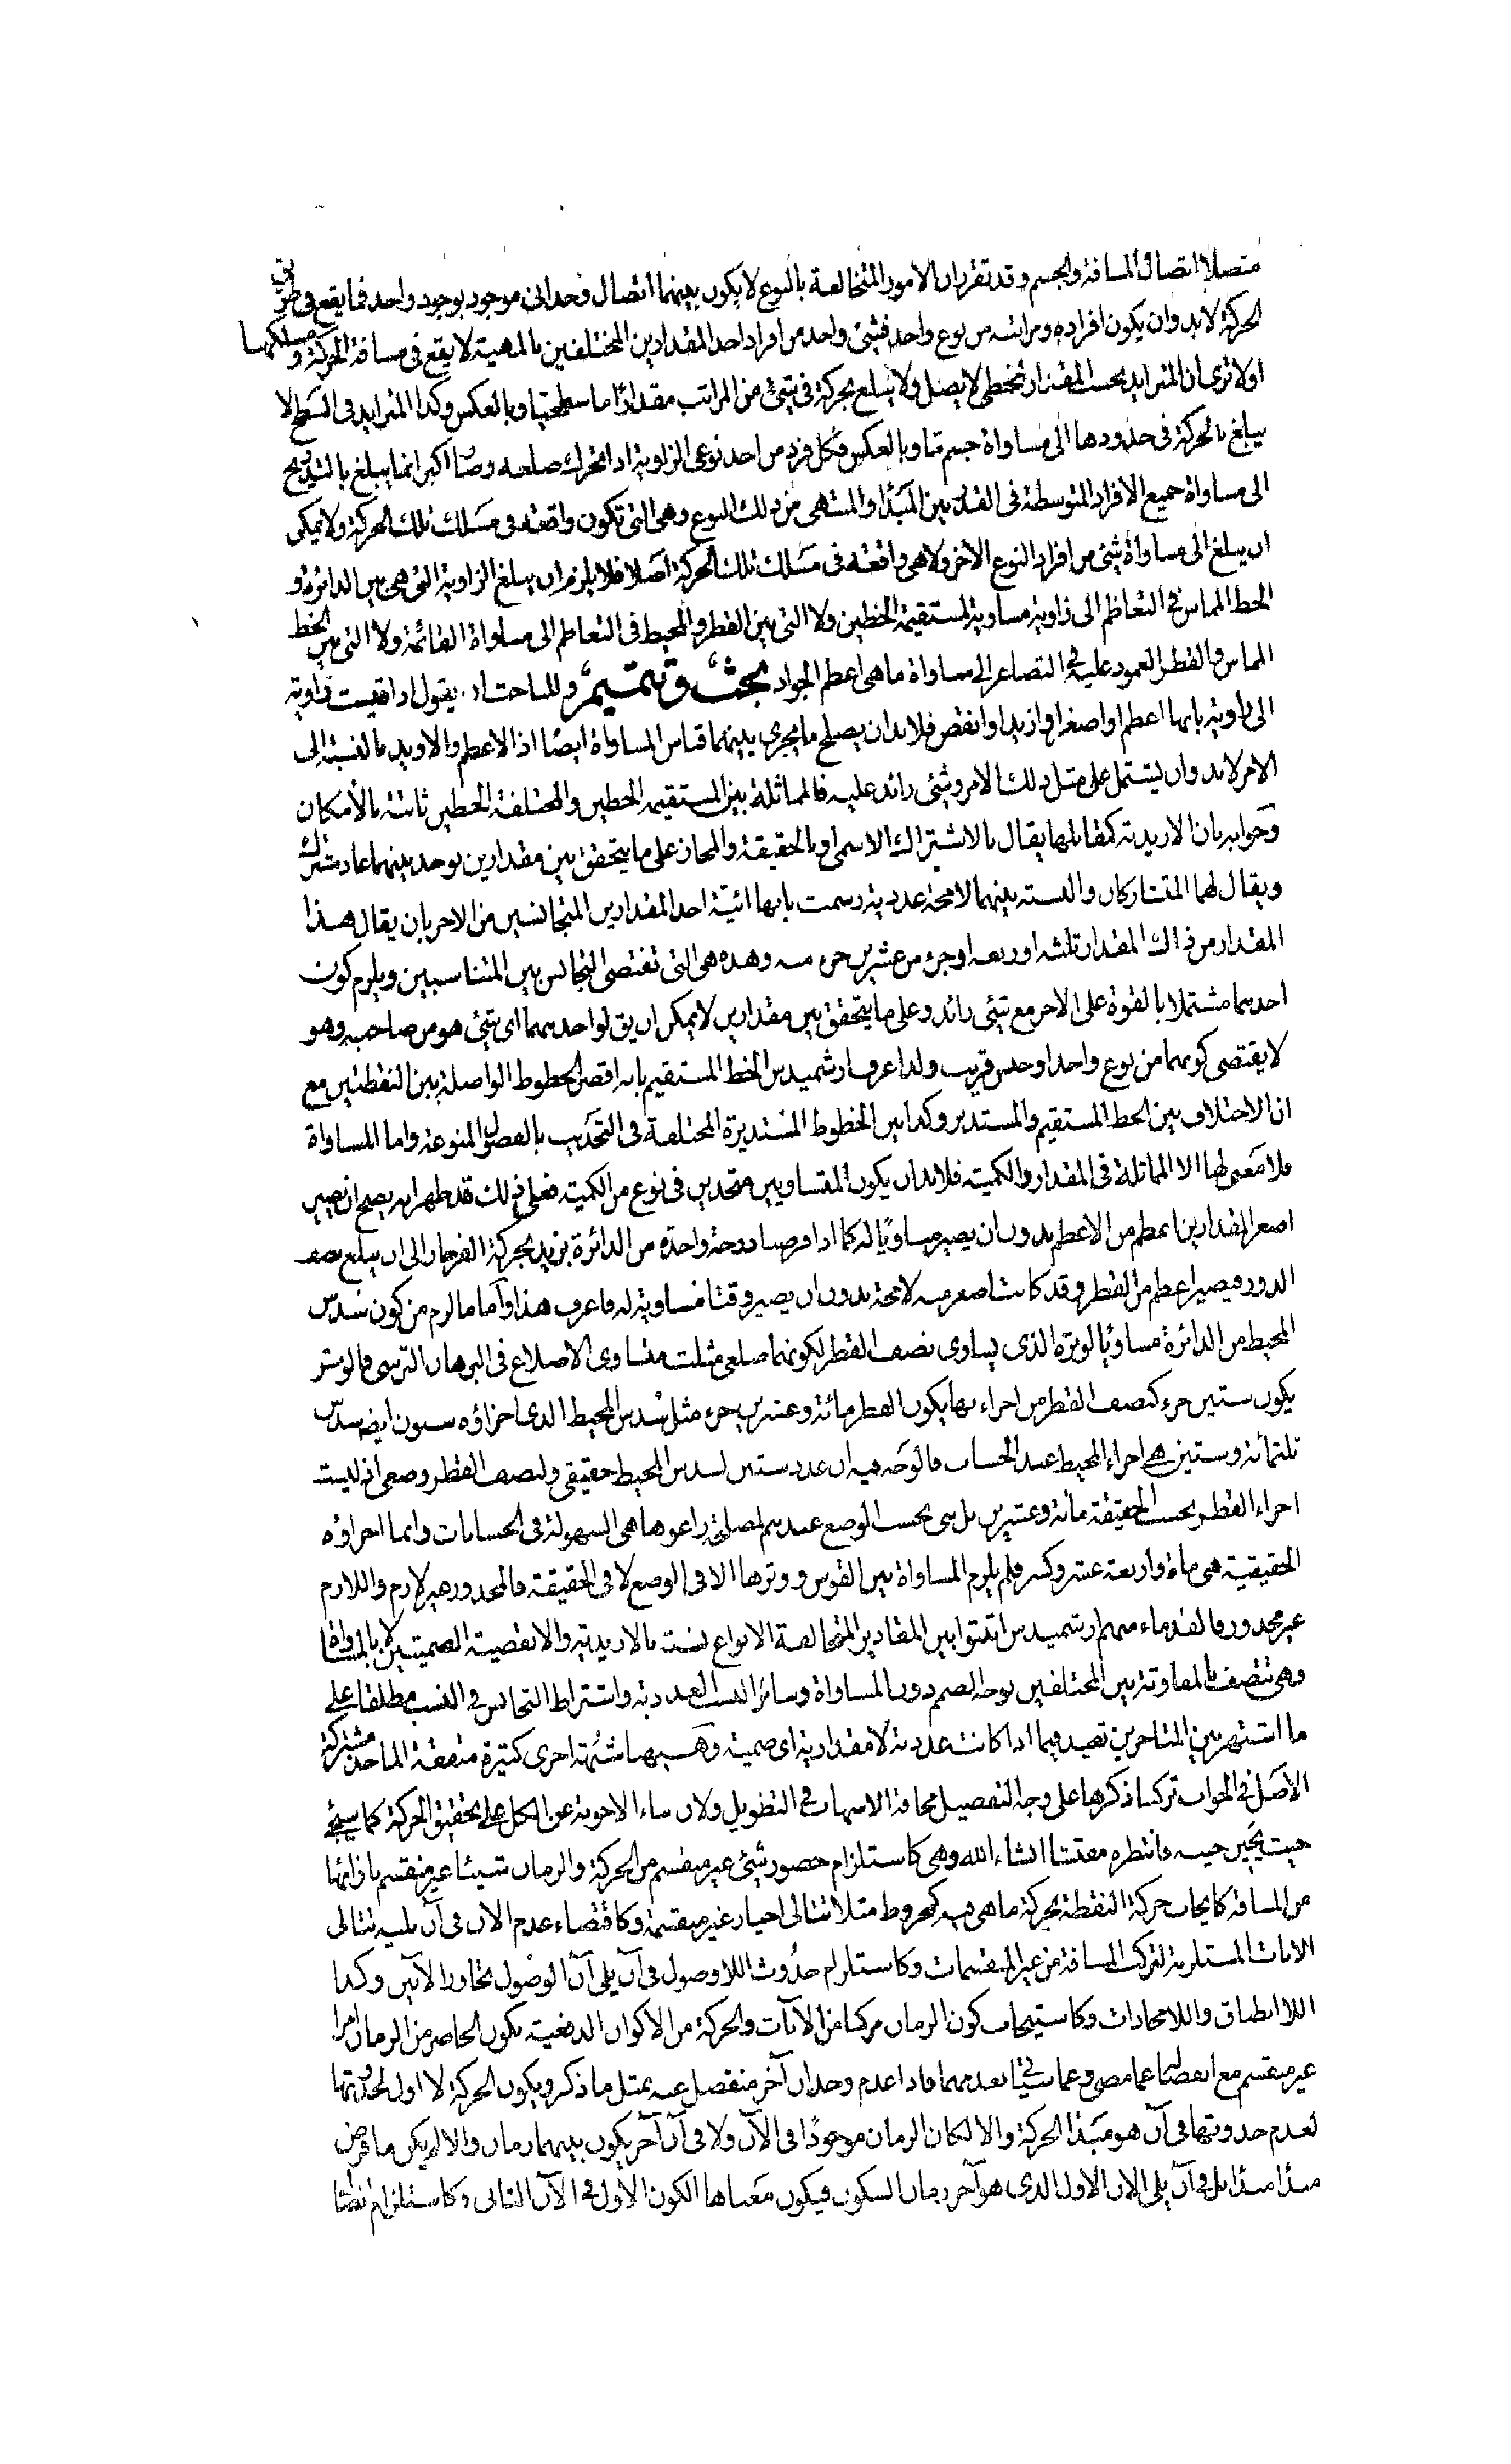 متصلا اتصال المسافة والجسم وقد تقرر ان الامور المتخالفة بالنوع لا يكون بينهما اتصال وحدانى موجود بوجود واحد فما يقع فى طريق
الحركة لا بد وان يكون افراده ومراتبه من نوع واحد فشئ واحد من افراد احد المقدارين المختلفين بالمهية لا يقع فى مسافة الحركة و مسلكها
اولا ترى ان المتزايد بحسب المقدار الخطى لا يصل ولا يبلغ بحركة فى شئ من المراتب مقدارا ما سطحيا وبالعكس وكذا المتزايد فى السطح لا
يبلغ بالحركة فى حدودها الى مساواة جسم ما وبالعكس فكل فرد من احد نوعى الزاوية اذا تحرك ضلعه وصار اكبر انما يبلغ بالتدريج
الى مساواة جميع الافراد المتوسطة فى القدر بين المبدا والمنتهى من ذلك النوع وهى التى تكون واقعة فى مسلك تلك الحركة ولا يمكن
ان يبلغ الى مساواة شئ من افراد النوع الآخر ولا هى واقعة فى مسلك تلك الحركة اصلا فلا يلزم ان يبلغ الزاوية التى هى بين الدائرة و
الخط المماس فى التعاظم الى زاوية مساوية لمستقيمة الخطين ولا التى بين القطر والمحيط فى التعاظم الى مساواة القائمة ولا التى بين الخط
المماس والقطر العمود عليه فى التصاغر الى مساواة ما هى اعظم الحواد بحث وتتميم وللباحث ان يقول اذا قيست زاوية
الى زاوية بانها اعظم او اصغر او ازيد او انقص فلا بد ان يصلح ما يجرى بينهما قياس المساواة ايضا اذ الاعظم والازيد بالنسبة الى
الامر لا بد وان يشتمل على مثل ذلك الامر وشئ زائد عليه فالمماثلة بين المستقيمة الخطين والمختلفة الخطين ثابتة بالامكان
وجوابه بان الازيدية كمقابلها يقال بالاشتراك الاسمى او بالحقيقة والمجاز على ما يتحقق بين مقدارين يوجد بينهما عاد مشترك
ويقال لهما المتشاركان والنسبة بينهما لا محة عددية رسمت بانها ائية احد المقدارين المتجانسين من الآخر بان يقال هذا
المقدار من ذاك المقدار ثلثه او ربعه او جزء من عشرين جزء منه وهذه هى التى تقتضى التجانس بين المتناسبين ويلزم كون
احدهما مشتملا بالقوة على الآخر مع شئ زائد وعلى ما يتحقق بين مقدارين لا يمكن ان يق لواحد منهما اى شئ هو من صاحبه وهو
لا يقتضى كونهما من نوع واحد او جنس قريب ولذا عرف ارشميدس الخط المستقيم بانه اقصر الخطوط الواصلة بين النقطتين مع
ان الاختلاف بين الخط المستقيم والمستدير وكذا بين الخطوط المستديرة المختلفة فى التحديب بالفصول المنوعة واما المساواة
فلا معنى لها الا المماثلة فى المقدار والكمية فلا بد ان يكون المتساويين متحدين فى نوع من الكمية فعلى ذلك قد ظهر انه يصح ان يصير
اصغر المقدارين اعظم من الاعظم بدون ان يصير مساويا له كما اذا فرضنا درجة واحدة من الدائرة يزيد بحركة الفرجار الى ان يبلغ نصف
الدور فيصير اعظم من القطر وقد كانت اصغر منه لا محة بدون ان يصير وقتا مساوية له فاعرف هذا واما ما لزم من كون سدس
المحيط من الدائرة مساويا لوتره الذى يساوى نصف القطر لكونهما ضلعى مثلث متساوى الاضلاع فى البرهان الترسى فالوتر
يكون ستين جزء كنصف القطر من اجزاء بها يكون القطر مائة وعشرين جزء مثل سدس المحيط الذى اجزاؤه ستون ايض سدس
ثلثمائة وستين هى اجزاء المحيط عند الحساب فالوجه فيه ان عدد ستين لسدس المحيط حقيقى ولنصف القطر وضعى اذ ليست
اجزاء القطر بحسب الحقيقة مائة وعشرين بل هى بحسب الوضع عندهم لمصلحة راعوها هى السهولة فى الحسابات وانما اجزاؤه
الحقيقية هى مائة واربعة عشر وكسر فلم يلزم المساواة بين القوس ووترها الا فى الوضع لا فى الحقيقة فالمحذور غير لازم واللازم
غير محذور فالقدماء منهم ارشميدس اثبتوا بين المقادير المتخالفة الانواع نسبت بالازيدية والانقصية الصميتين لا بالمساواة
وهى تتصف بالمفاوتة بين المختلفين بوجه الصمم دون المساواة وسائر النسب العددية واشتراط التجانس فى النسب مطلقا على
ما اشتهر بين المتاخرين تقييد فيما اذا كانت عددية لا مقدارية اى صمية وهيهنا شبهة اخرى كثيرة متفقة الماخذ مشتركة
الاصل فى الجواب تركنا ذكرها على وجه التفصيل مخافة الاسهاب فى التطويل ولان بناء الاجوبة عن الكل على تحقيق الحركة كما سيجئ
حيث يحين حينه فانتظره مفتشا انشاء الله وهى كاستلزام حضور شئ غير منقسم من الحركة والزمان شيئا غير منقسم بازائها
من المسافة كايجاب حركة النقطة بحركة ما هى فيه كمخروط مثلا تتالى احياز غير منقسمة وكاقتضاء عدم الآن فى آن يليه تتالى
الانات المستلزمة لتركب المسافة من غير المنقسمات وكاستلزام حدوث اللاوصول فى آن يلى آن الوصول تجاور الآنين وكذا
اللاانطباق واللامحاذات وكاستيجاب كون الزمان مركبا من الانات والحركة من الاكوان الدفعية بكون الحاضر من الزمان امرا
غير منقسم مع انفصالها عما مضى وعما سيجئ بعدمهما فاذا عدم وجد آن آخر منفصل عنه بمثل ما ذكر وبكون الحركة لا اول لحدوثها
لعدم حدوثها فى آن هو مبدا الحركة والا لكان الزمان موجودا فى الآن ولا فى آن آخر يكون بينهما زمان والا لم يكن ما فرض
مبدا مبدا بل فى آن يلى الان الاول الذى هو آخر زمان السكون فيكون معناها الكون الاول فى الآن الثانى وكاستلزام